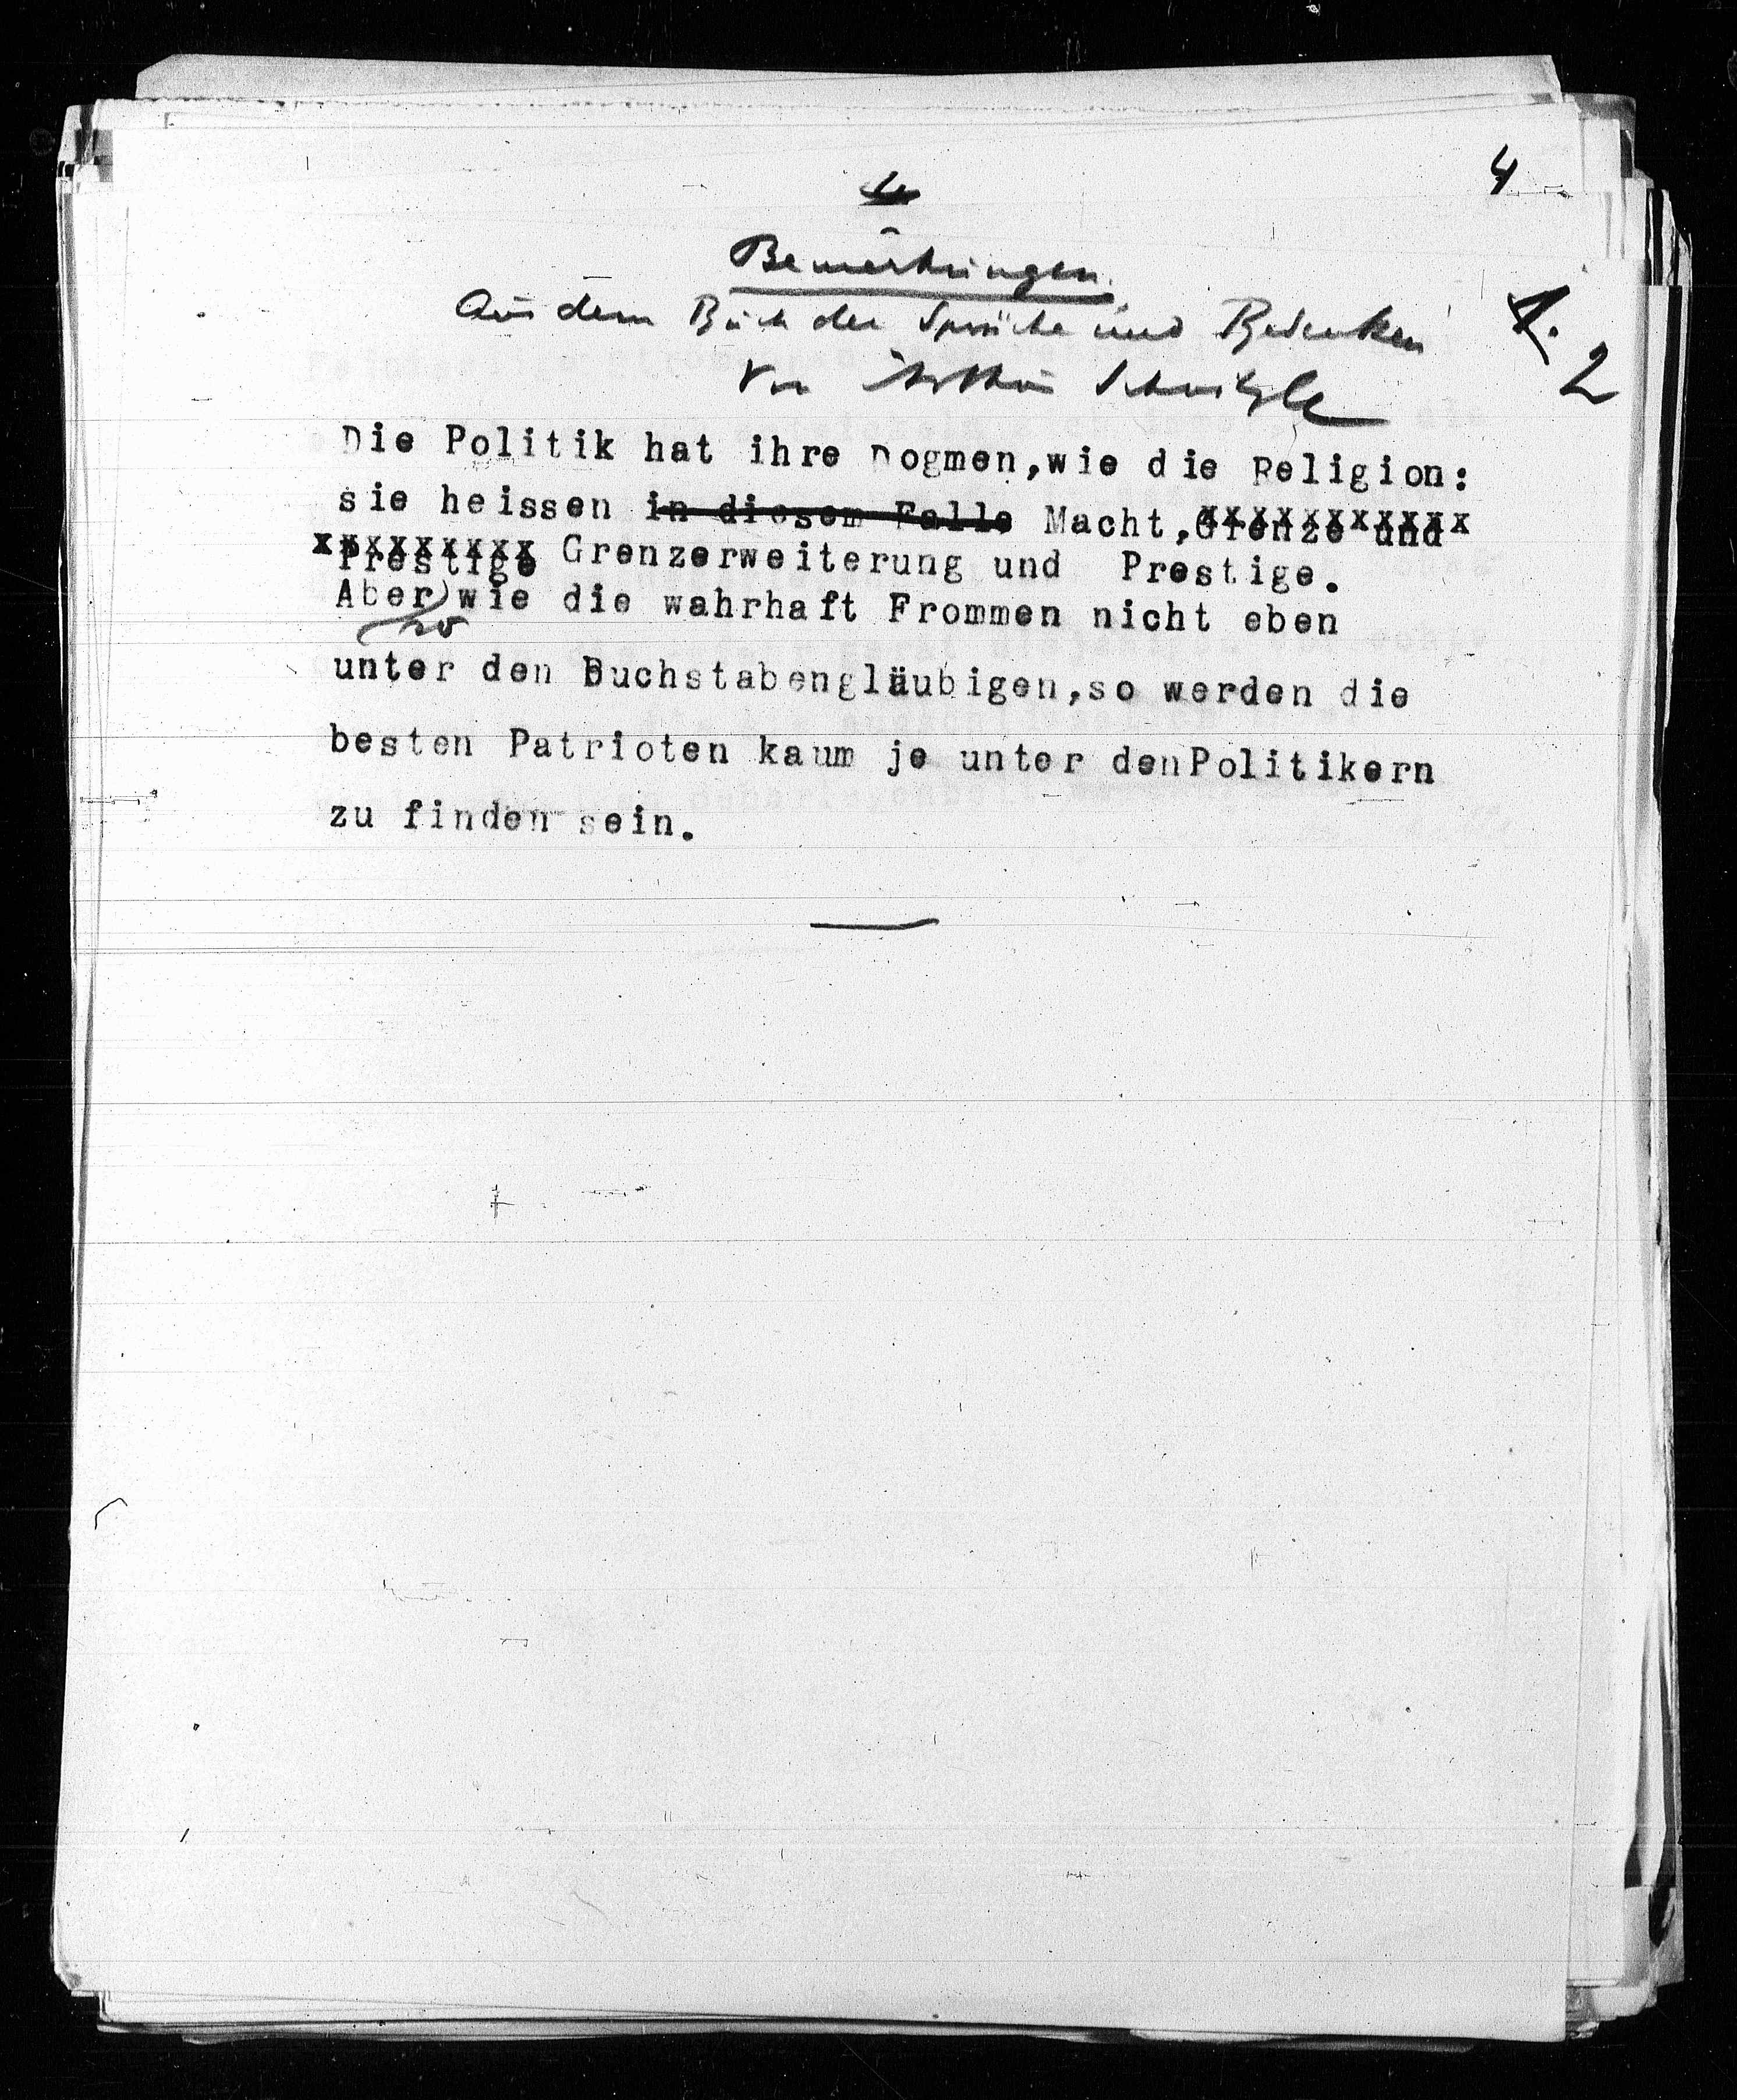 4
Bemerkungen.
Aus dem Buch der Sprüche und Bedenken
Von Arthur Schnitzler
1.
2
Die Politik hat ihre Dogmen,wie die Religion:
sie heissen in diesem Falle Macht,Grenze und
Prestige Grenzerweiterung und Prestige.
Aber wie die wahrhaft Frommen nicht eben
so
unter den Buchstabengläubigen,so werden die
besten Patrioten kaum je unter denPolitikern
zu finden sein.